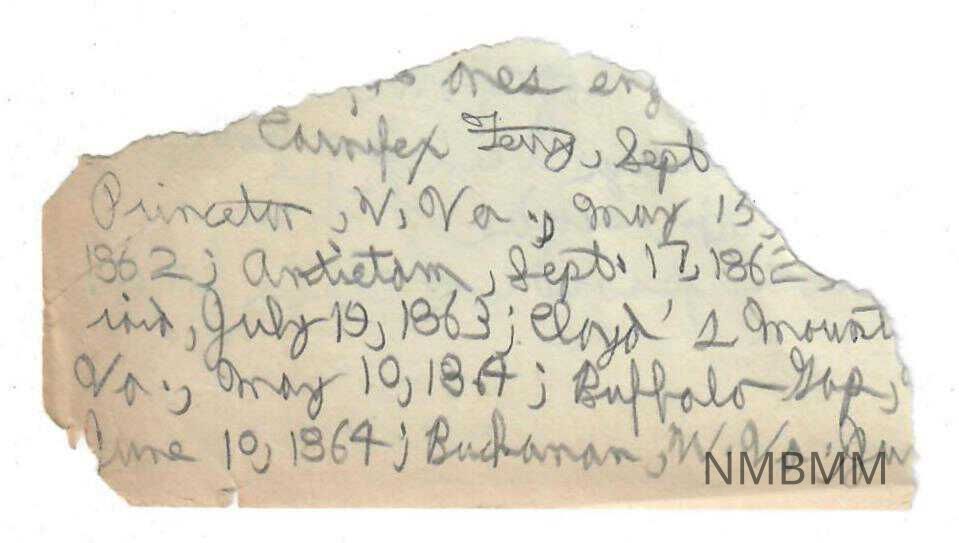 ones eng
Carnifex Ferry, Sept
Princeton, W. Va., May 15,
1862; Antietam, Sept. 17, 1862,
inia, July 19, 1863; Cloyd's Mount
Va., May 10, 1864; Buffalo Gap,
June 10, 1864; Buchanan, W. Va.
NMBMM